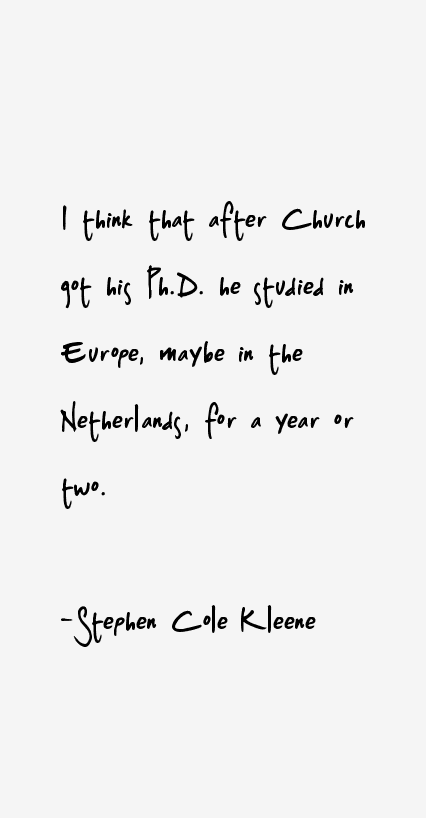 I think that after Church
got his Ph.D. he studied in
Europe, maybe in the
Netherlands, for a year or
two.
-Stephen Cole Kleene